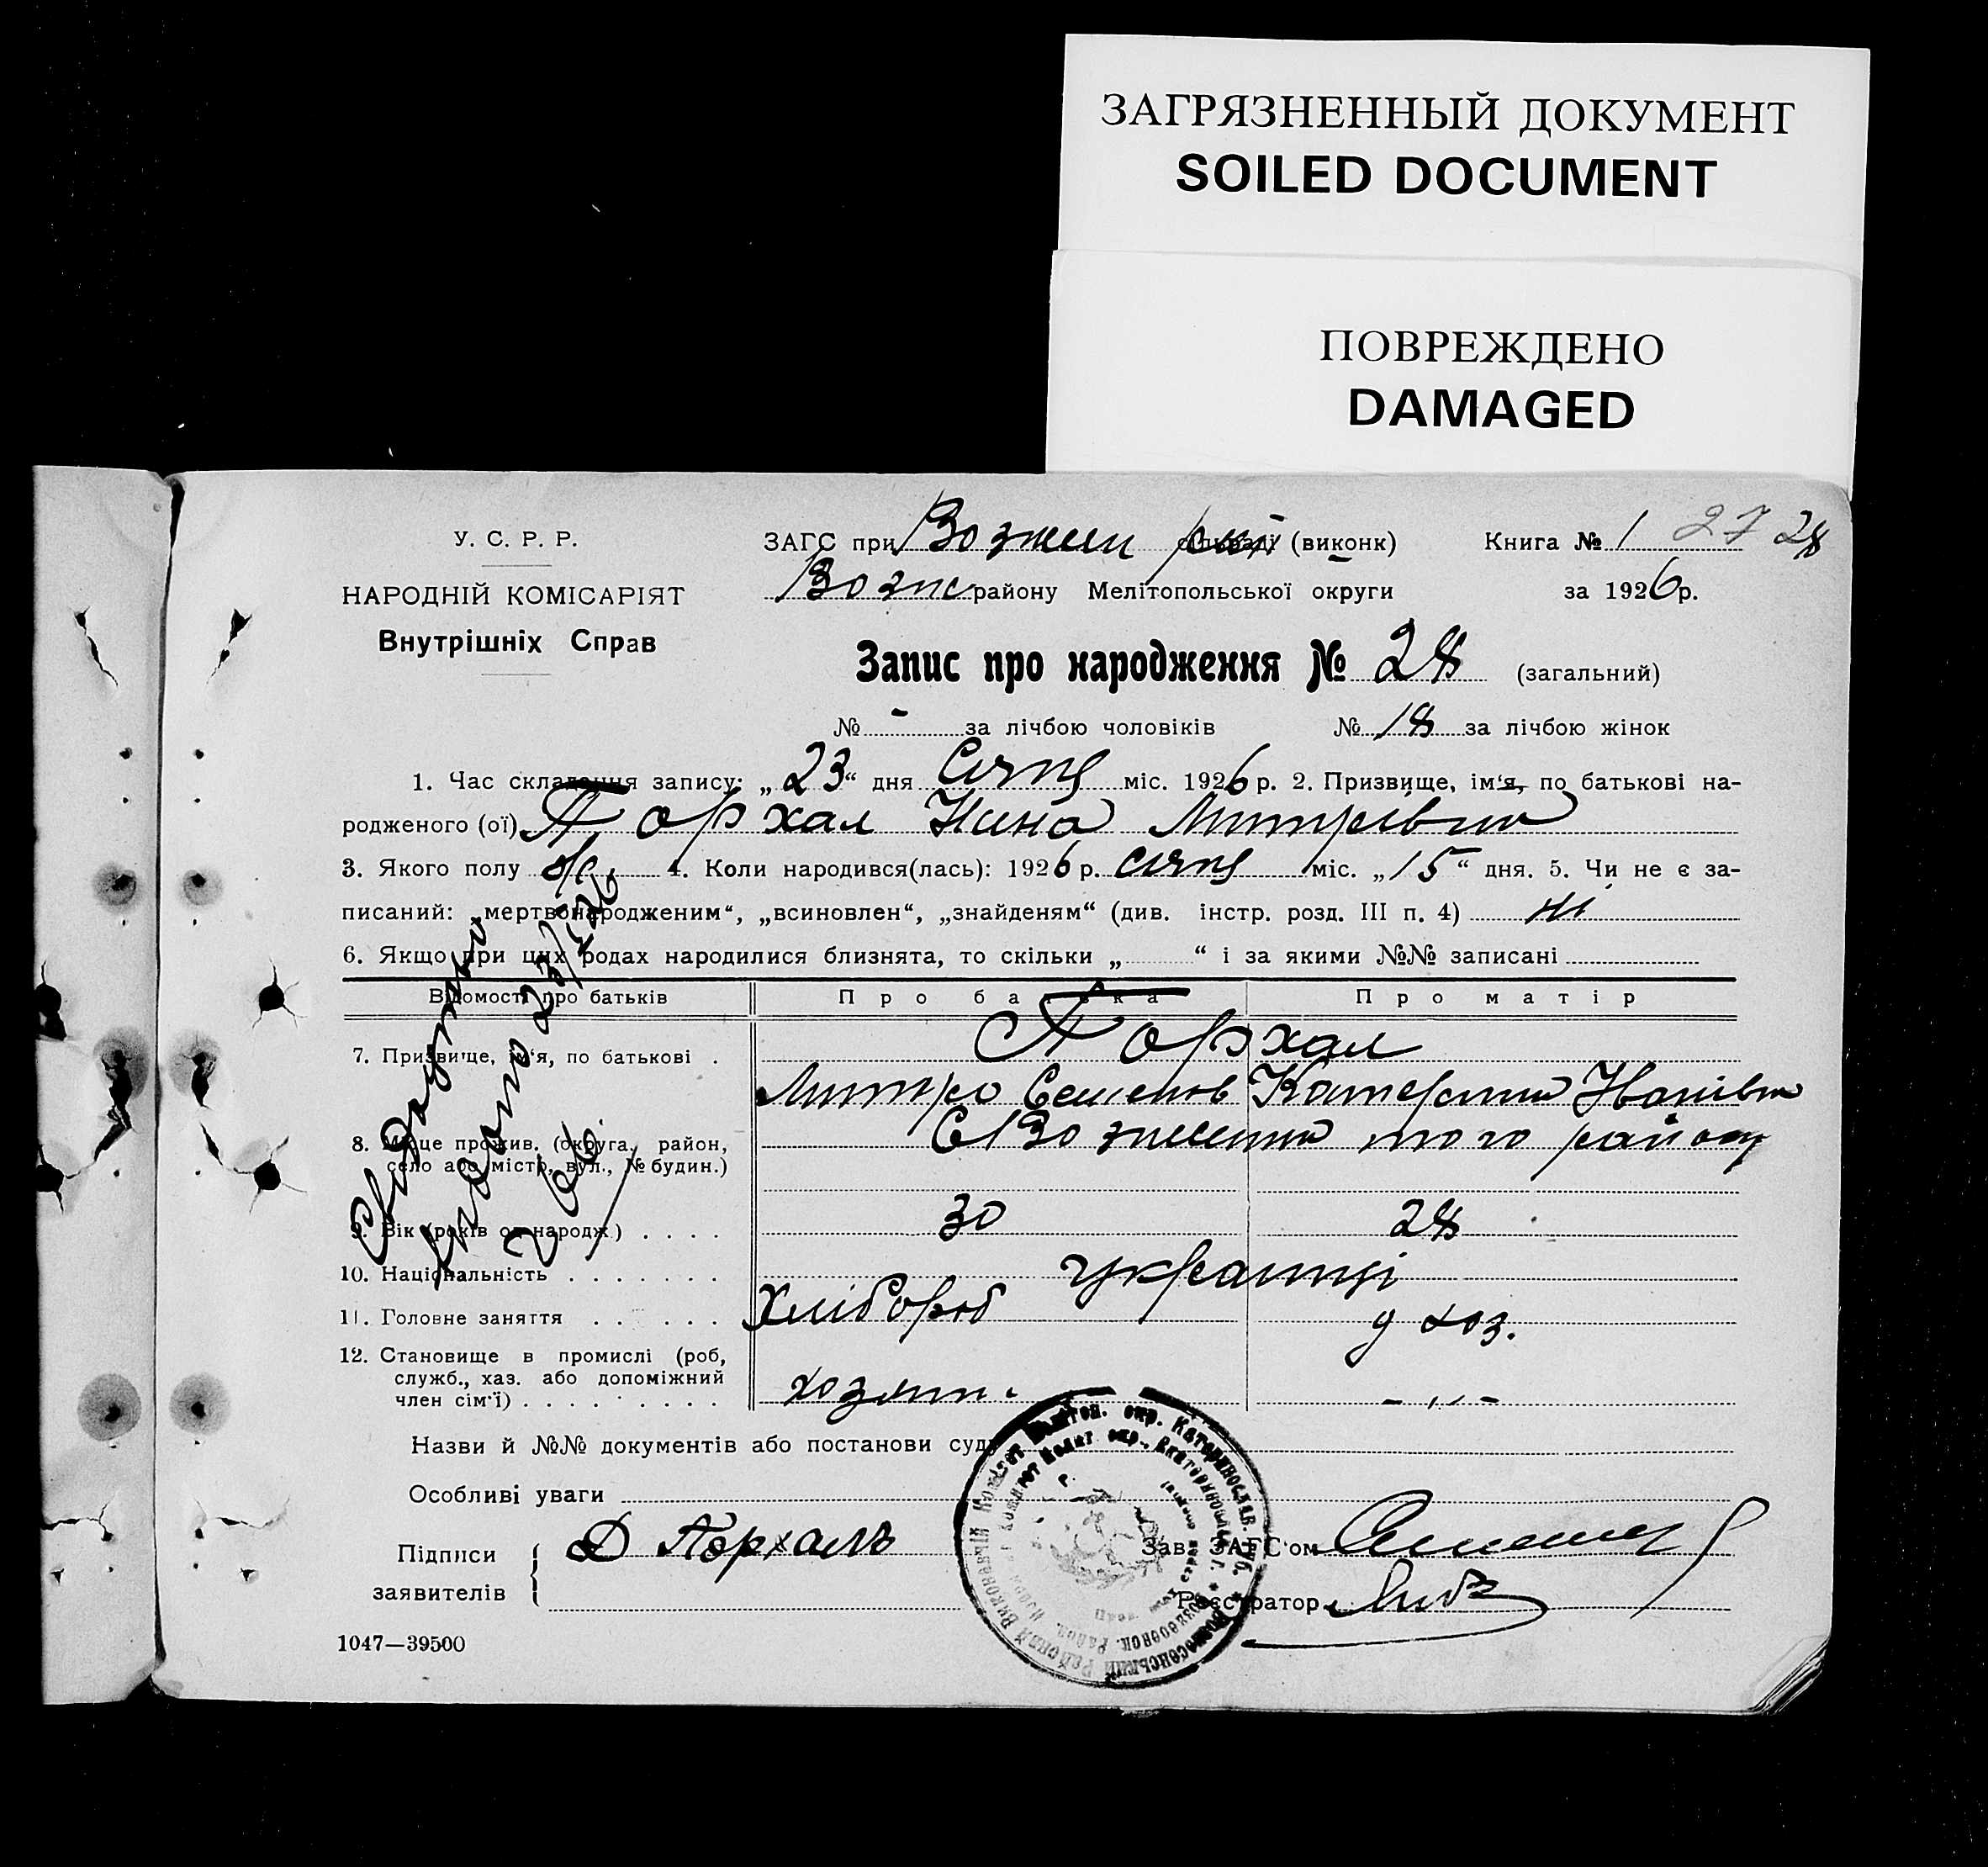 ЗАГРЯЗНЕННЫЙ ДОКУМЕНТ
SOILED DOCUMENT
ПОВРЕЖДЕНО
DAMAGED
У. С. Р. Р.
НАРОДНІЙ КОМІСАРІЯТ
Внутрішніх Справ
ЗАГС при Возжен рай (виконк) Книга № 1 27 28
Возне району Мелітопольської округи за 1926 р.
Запис про народження № 28 (загальний)
№ - за лічбою чоловіків № 18 за лічбою жінок
1. Час складення запису: „ 23 “ дня Січня міс. 1926 р. 2. Призвище, ім'я, по батькові на-
родженого (ої) Порхал Нина Митрівна
3. Якого полу 4. Коли народився(лась): 1926 р. січня міс. „ 15 “ дня. 5. Чи не є за-
писаний: „мертвонародженим“, „всиновлен“, „знайденям“ (див. інстр. розд. III п. 4) ні
6. Якщо при цих родах народилися близнята, то скільки „ “ і за якими №№ записані
Відомості про батьків Про батька Про матір
7. Призвище, ім'я, по батькові . Порхал
Митро Семенов Катерина Іванівна
8. Місце прожив. (округа, район, С Вознесенка того району
село або місто, вул., № будин.)
9. Вік (років од народж.) . . . . 30 28
10. Національність . . . . . . . українці
11. Головне заняття . . . . . . Хлібороб д хоз.
12. Становище в промислі (роб,
служб., хаз. або допоміжний
член сім'ї) . . . . . . . . . хозяїн. - „ -
Назви й №№ документів або постанови суду
Особливі уваги
Підписи Д Порхалъ Зав. ЗАГС'ом
заявителів Реєстратор
1047—39500